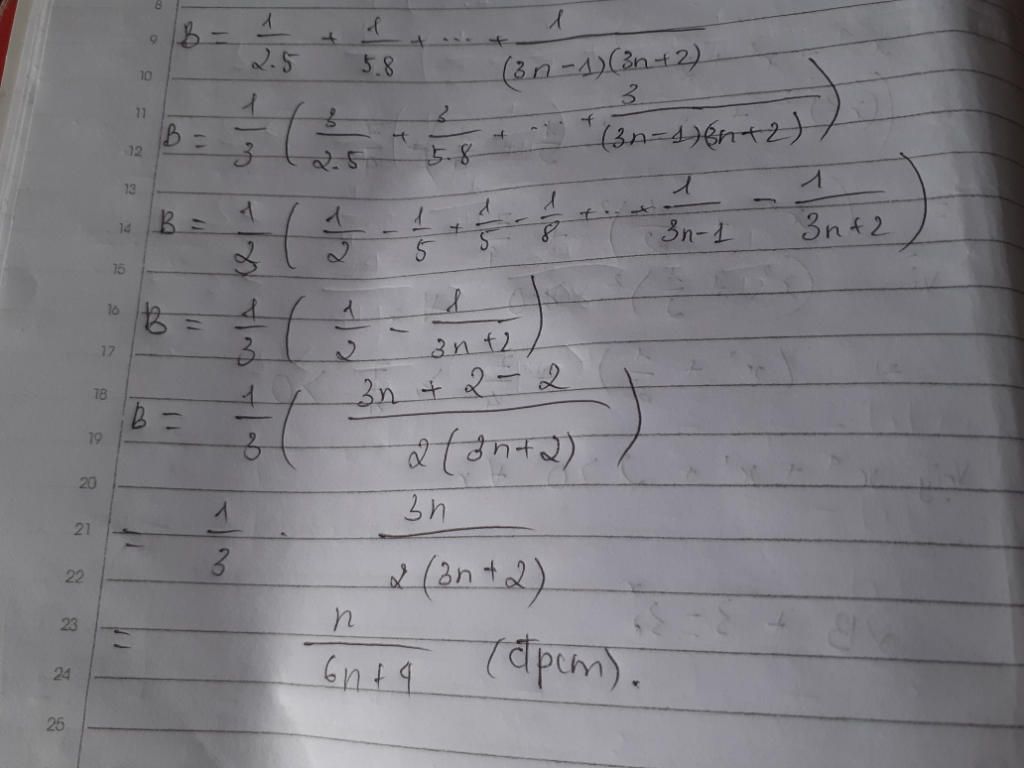 8
9 B = 1/2.5 + 1/5.8 + ... + 1/(3n-1)(3n+2)
10
11 B = 1/3 ( 3/2.5 + 3/5.8 + ... + 3/(3n-1)(3n+2) )
12
13
14 B = 1/3 ( 1/2 - 1/5 + 1/5 - 1/8 + ... + 1/3n-1 - 1/3n+2 )
15
16 B = 1/3 ( 1/2 - 1/3n+2 )
17
18 B = 1/3 ( 3n + 2 - 2/2(3n+2) )
19
20
21 = 1/3 . 3n/2(3n+2)
22
23 = n/6n+4 (đpcm).
24
25